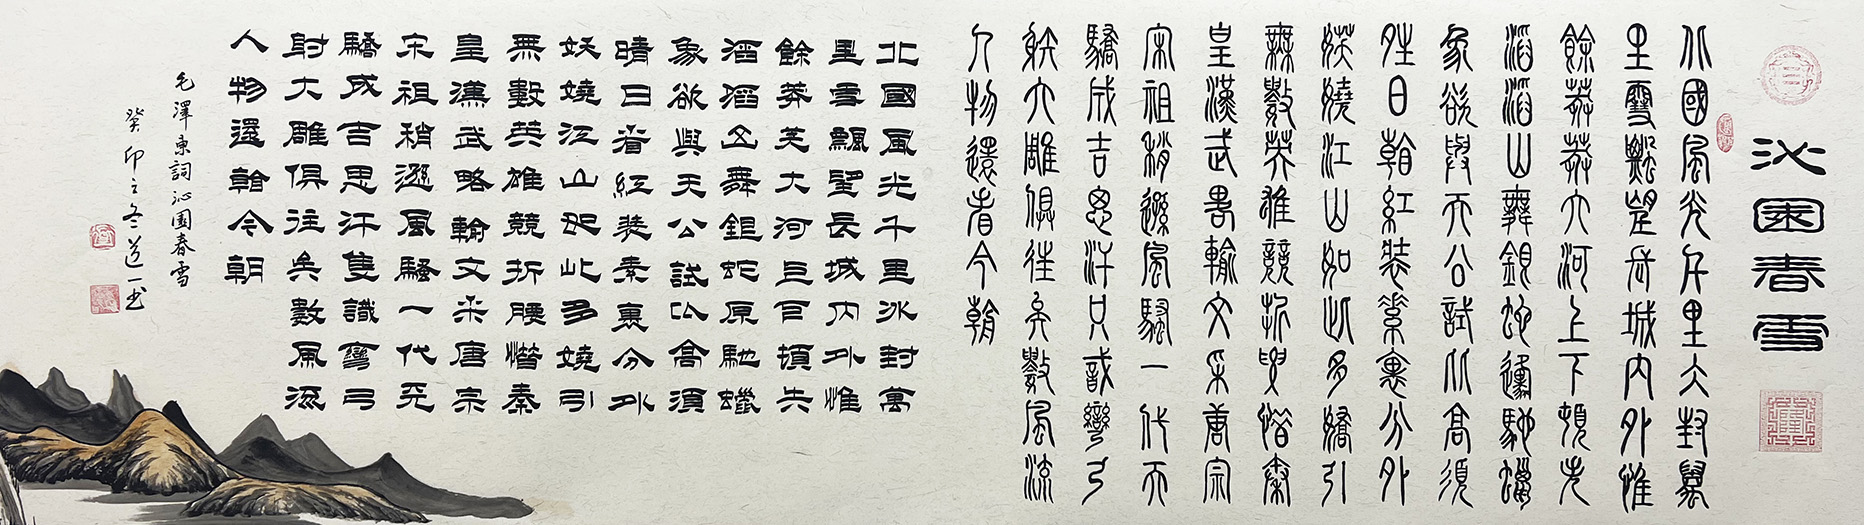 沁園春雪
北國風光千里冰封萬
里雪飄望長城內外惟
餘莽莽大河上下頓失
滔滔山舞銀蛇原馳蠟
象欲與天公試比高須
晴日看紅裝素裹分外
妖嬈江山如此多嬌引
無數英雄競折腰惜秦
皇漢武略輸文采唐宗
宋祖稍遜風騷一代天
驕成吉思汗只識彎弓
射大雕俱往矣數風流
人物還看今朝
北國風光千里冰封萬
里雪飄望長城內外惟
餘莽莽大河上下頓失
滔滔山舞銀蛇原馳蠟
象欲與天公試比高須
晴日看紅裝素裹分外
妖嬈江山如此多嬌引
無數英雄競折腰惜秦
皇漢武略輸文采唐宗
宋祖稍遜風騷一代天
驕成吉思汗隻識彎弓
射大雕俱往矣數風流
人物還看今朝
毛澤東詞沁園春雪
癸卯之冬道一書